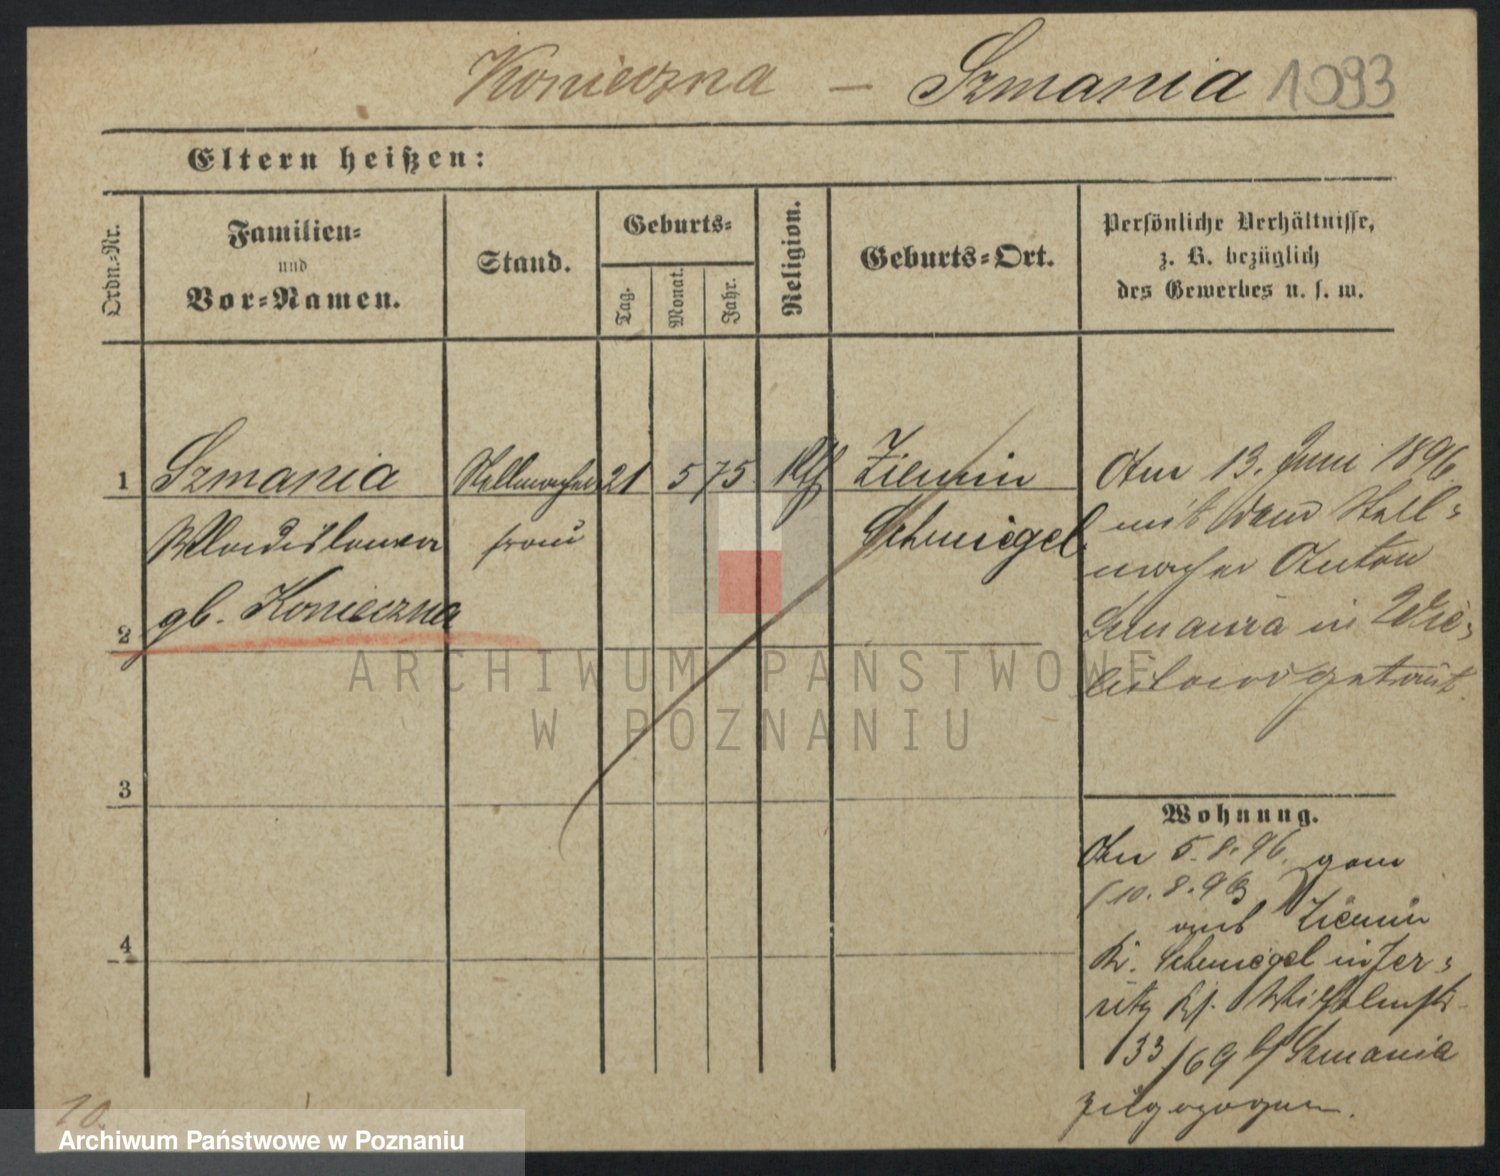 Konieczna — Szmania 1093
Eltern heißen:
Ordn.-Nr.
Familien-
und
Vor-Namen.
Stand.
Geburts-
Tag.
Monat.
Jahr.
Religion.
Geburts-Ort.
Persönliche Verhältnisse,
z. B. bezüglich
des Gewerbes u. s. w.
1 Szmania Stellmacher 21 5 75 Ziemin
Wladislawa frau Schmiegel
gb. Konieczna
2
3
4
Am 13. Juni 1896
mit dem Stell-
macher Anton
Szmania in Wie-
getraut.
Wohnung.
An 5.8.96. vom
(10.8.96)
aus Ziemin
Kr. Schmiegel in Jer-
sitz
33/69 b/ Szmania
zugezogen.
10.
ARCHIWUM PAŃSTWOWE
W POZNANIU
Archiwum Państwowe w Poznaniu